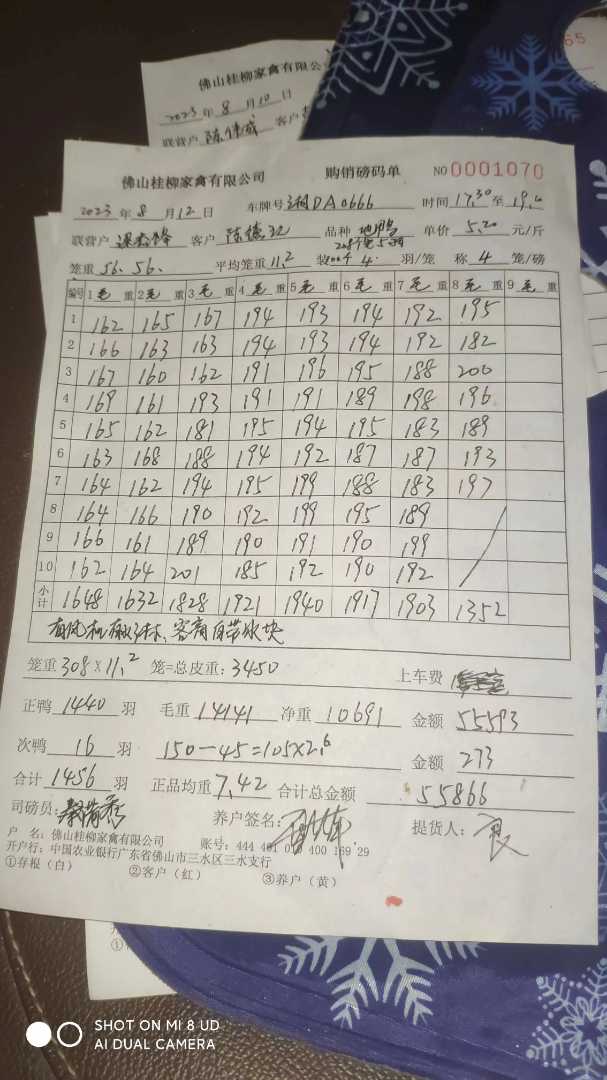 佛山桂柳家禽有限公
2023年8月10日
联营户 陈伟成 客户
65
佛山桂柳家禽有限公司 购销磅码单 NO 0001070
2023年8月12日 车牌号 湘DA0666 时间 17,30至19,
联营户 客户 陈德 品种 地鸭 单价 5.20 元/斤
笼重 56. 56. 平均笼重 11.2 装 4 羽/笼 称 4 笼/磅
编号 1毛重 2毛重 3毛重 4毛重 5毛重 6毛重 7毛重 8毛重 9毛重
1 162 165 167 194 193 194 192 195
2 166 163 163 194 193 194 192 182
3 167 160 162 191 196 195 188 200
4 169 161 193 191 191 189 198 196
5 165 162 181 195 194 195 183 189
6 163 168 188 194 192 187 187 193
7 164 162 194 195 199 188 183 197
8 164 166 190 192 199 195 189
9 166 161 189 190 191 190 199
10 162 164 201 185 192 190 192
小计 1648 1632 1828 1921 1940 1917 1903 1352
客商自带冰块
笼重 308 x 11.2 笼=总皮重: 3450 上车费
正鸭 1440 羽 毛重 14141 净重 10691 金额 55593
次鸭 16 羽 150-45=105x2.6 金额 273
合计 1456 羽 正品均重 7.42 合计总金额 55866
司磅员: 养户签名: 提货人:
户 名: 佛山桂柳家禽有限公司 账号: 444 400 169 29
开户行: 中国农业银行广东省佛山市三水区三水支行
①存根(白) ②客户(红) ③养户(黄)
SHOT ON MI 8 UD
AI DUAL CAMERA